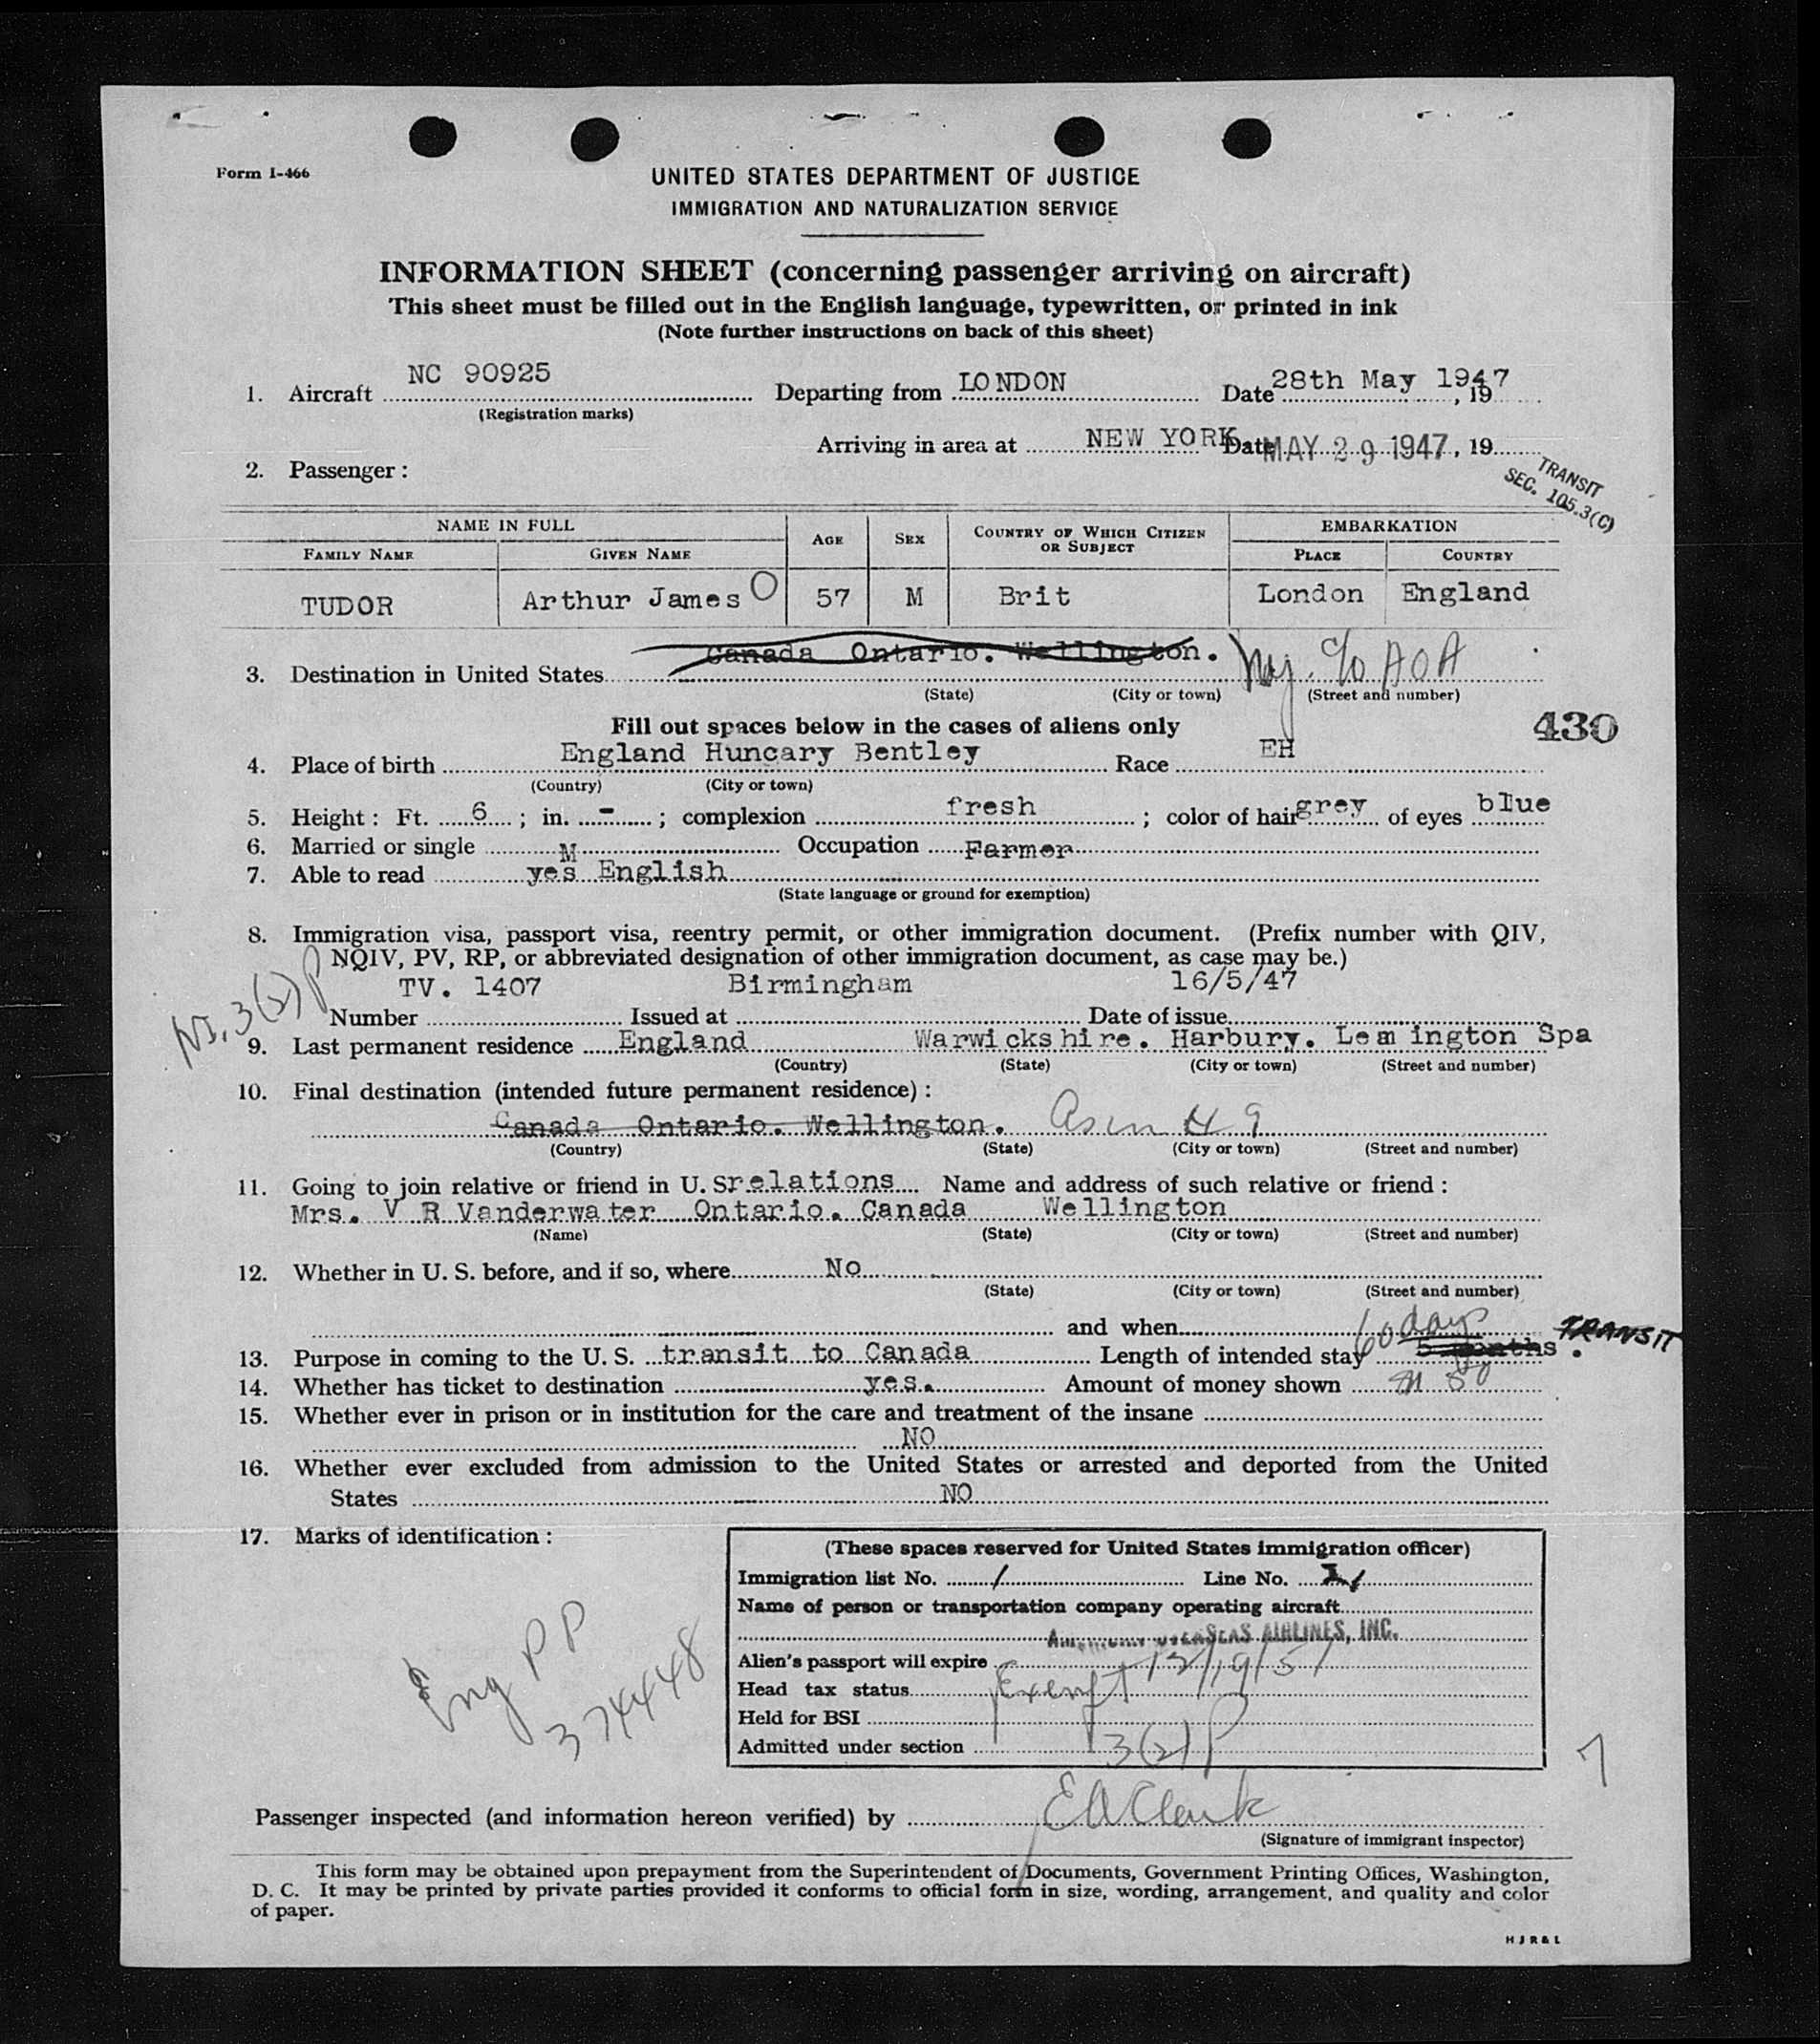 Form I-466
UNITED STATES DEPARTMENT OF JUSTICE
IMMIGRATION AND NATURALIZATION SERVICE
INFORMATION SHEET (concerning passenger arriving on aircraft)
This sheet must be filled out in the English language, typewritten, or printed in ink
(Note further instructions on back of this sheet)
1. Aircraft NC 90925 Departing from LONDON Date 28th May 1947, 19
(Registration marks)
Arriving in area at NEW YORK. Date MAY 29 1947, 19
2. Passenger:
TRANSIT
SEC. 105.3(C)
NAME IN FULL AGE SEX COUNTRY OF WHICH CITIZEN OR SUBJECT EMBARKATION
FAMILY NAME GIVEN NAME PLACE COUNTRY
TUDOR Arthur James O 57 M Brit London England
3. Destination in United States Canada Ontario. Wellington. c/o AOA
(State) (City or town) (Street and number)
Fill out spaces below in the cases of aliens only
430
4. Place of birth England Huncary Bentley Race EH
(Country) (City or town)
5. Height: Ft. 6; in. -; complexion fresh; color of hair grey of eyes blue
6. Married or single M Occupation Farmer
7. Able to read yes English
(State language or ground for exemption)
8. Immigration visa, passport visa, reentry permit, or other immigration document. (Prefix number with QIV,
NQIV, PV, RP, or abbreviated designation of other immigration document, as case may be.)
TV. 1407 Birmingham 16/5/47
Number Issued at Date of issue
3(2)P
9. Last permanent residence England Warwickshire. Harbury. Lem ington Spa
(Country) (State) (City or town) (Street and number)
10. Final destination (intended future permanent residence):
Canada Ontario. Wellington.
(Country) (State) (City or town) (Street and number)
11. Going to join relative or friend in U. S relations Name and address of such relative or friend:
Mrs. V R Vanderwater Ontario. Canada Wellington
(Name) (State) (City or town) (Street and number)
12. Whether in U. S. before, and if so, where No
(State) (City or town) (Street and number)
and when
60 days TRANSIT
13. Purpose in coming to the U. S. transit to Canada Length of intended stay 5 months.
14. Whether has ticket to destination yes. Amount of money shown
15. Whether ever in prison or in institution for the care and treatment of the insane
NO
16. Whether ever excluded from admission to the United States or arrested and deported from the United
States NO
17. Marks of identification:
(These spaces reserved for United States immigration officer)
Immigration list No. 1 Line No.
Name of person or transportation company operating aircraft
AMERICAN OVERSEAS AIRLINES, INC.
Alien's passport will expire 12/19/51
Head tax status Exempt
Held for BSI
Admitted under section 3(2)P
Eng PP
374448
7
Passenger inspected (and information hereon verified) by EA Clark
(Signature of immigrant inspector)
This form may be obtained upon prepayment from the Superintendent of Documents, Government Printing Offices, Washington,
D. C. It may be printed by private parties provided it conforms to official form in size, wording, arrangement, and quality and color
of paper.
HJR&L